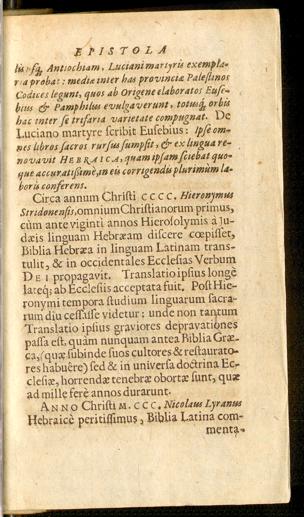 EPISTOLA
Antiochiam, Luciani martyris exempla-
ria probat: mediæ inter has provinciæ Palæstinos
Codices legunt, quos ab Origene elaboratos Euse-
bius & Pamphilus evulgaverunt, totusq́ orbis
hac inter se trifaria varietate compugnat. De
Luciano martyre scribit Eusebius: Ipse om-
nes libros sacros rursus sumpsit, & ex lingua re-
novavit HEBRAICA, quam ipsam sciebat quo-
que accuratissimè, in eis corrigendis plurimum la-
boris conferens.
Circa annum Christi CCCC. Hieronymus
Stridonensis, omnium Christianorum primus,
cùm ante viginti annos Hierosolymis à Ju-
dæis linguam Hebræam discere cœpisset,
Biblia Hebræa in linguam Latinam trans-
tulit, & in occidentales Ecclesias Verbum
DEI propagavit. Translatio ipsius longè
lateq; ab Ecclesiis acceptata fuit. Post Hie-
ronymi tempora studium linguarum sacra-
rum diu cessasse videtur: unde non tantum
Translatio ipsius graviores depravationes
passa est, quàm nunquam antea Biblia Græ-
ca, (quæ subinde suos cultores & restaurato-
res habuêre) sed & in universa doctrina Ec-
clesiæ, horrendæ tenebræ obortæ sunt, quæ
ad mille ferè annos durarunt.
ANNO Christi M. CCC. Nicolaus Lyranus
Hebraicè peritissimus, Biblia Latina com-
menta-